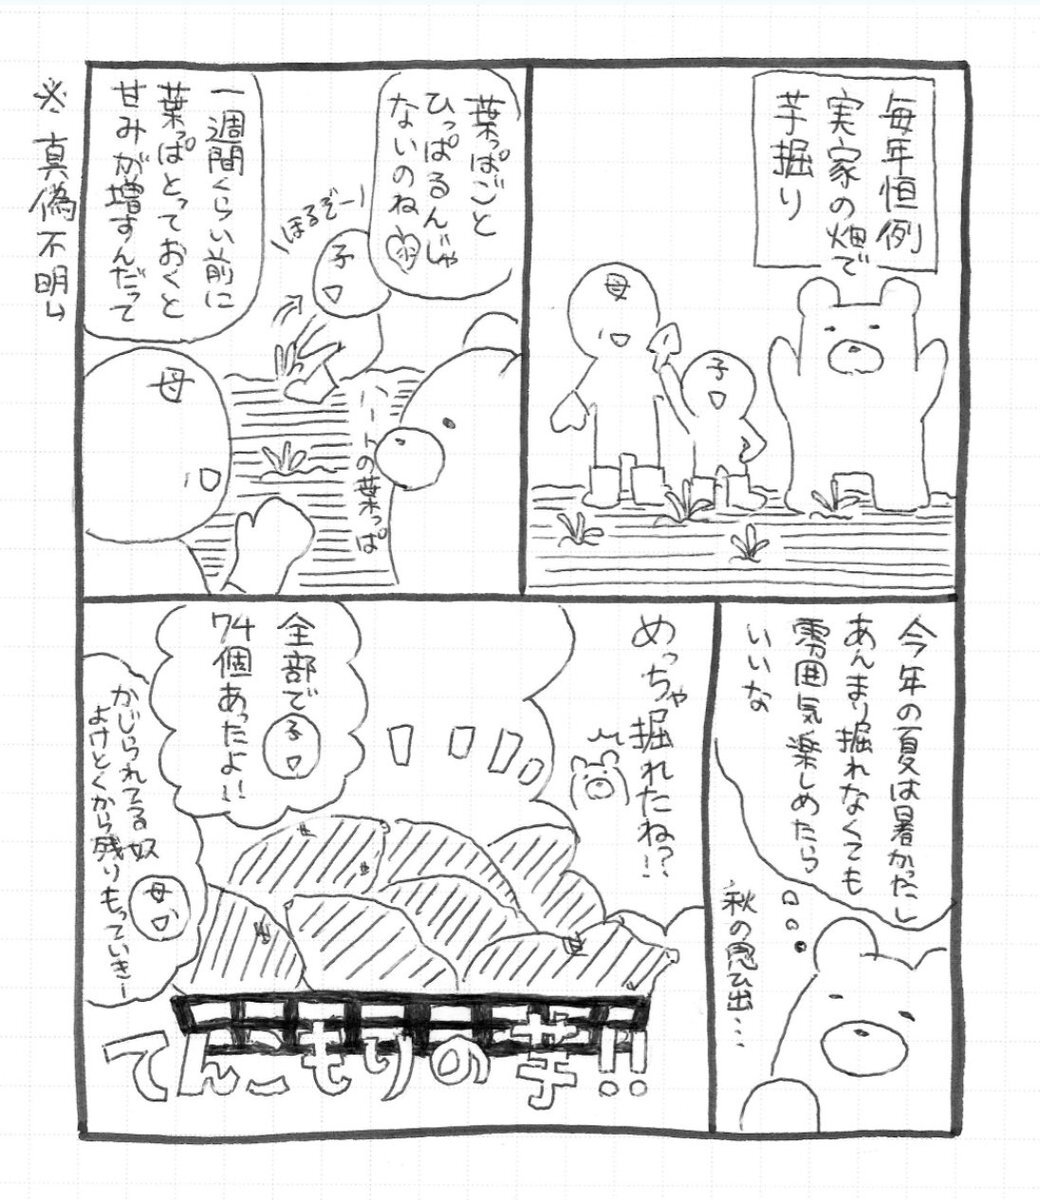 毎年恒例
実家の畑で
芋掘り
母
子
葉っぱごと
ひっぱるんじゃ
ないのね
ほるぞー!
子
ハートの葉っぱ
一週間くらい前に
葉っぱとっておくと
甘みが増すんだって
母
※真偽不明
今年の夏は暑かったし
あんまり掘れなくても
雰囲気楽しめたら
いいな
秋の思ひ出…
めっちゃ掘れたね?!
全部で
74個あったよ!!
子
かじられてる奴
よけとくから残りもっていきー
母
てんこもりの芋!!